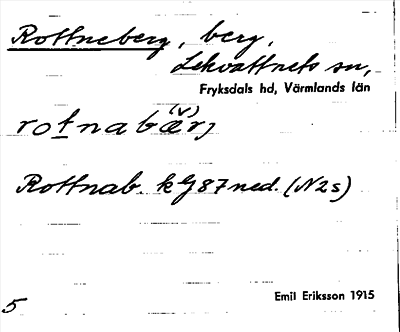 Rottneberg, berg,
Lekvattnets sn,
Fryksdals hd, Värmlands län
(v)
rotnabærj
Rottnab. kG87ned. (N2s)
Emil Eriksson 1915
5